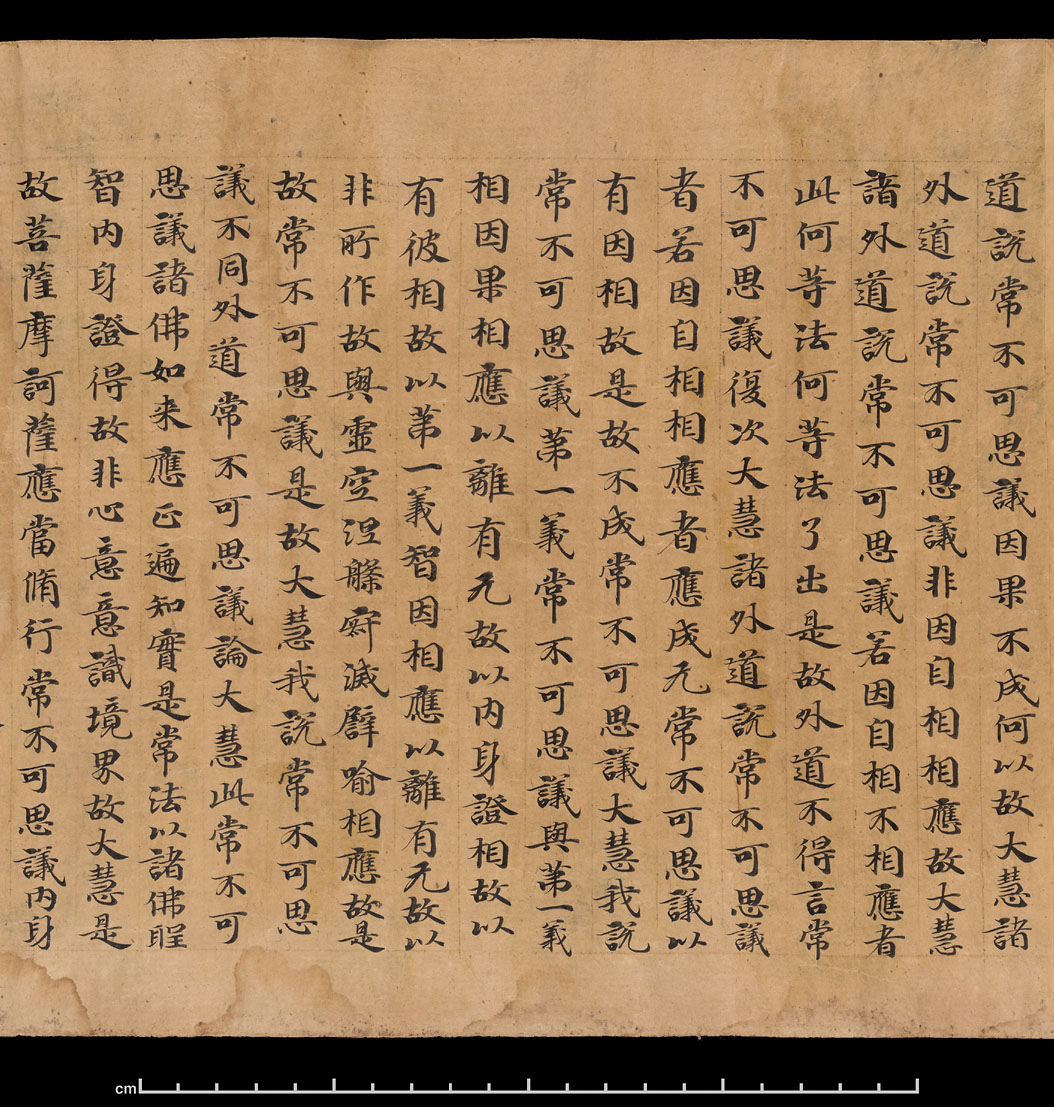 道説常不可思議因果不成何以故大慧諸
外道説常不可思議非因自相相應故大慧
諸外道説常不可思議若因自相不相應者
此何等法何等法了出是故外道不得言常
不可思議復次大慧諸外道説常不可思議
者若因自相相應者應成无常不可思議以
有因相故是故不成常不可思議大慧我説
常不可思議第一義常不可思議與第一義
相因果相應以離有无故以内身證相故以
有彼相故以第一義智因相應以離有无故以
非所作故與虛空涅槃寂滅譬喻相應故是
故常不可思議是故大慧我説常不可思
議不同外道常不可思議論大慧此常不可
思議諸佛如来應正遍知實是常法以諸佛聖
智内身證得故非心意意識境界故大慧是
故菩薩摩訶薩應當脩行常不可思議内身